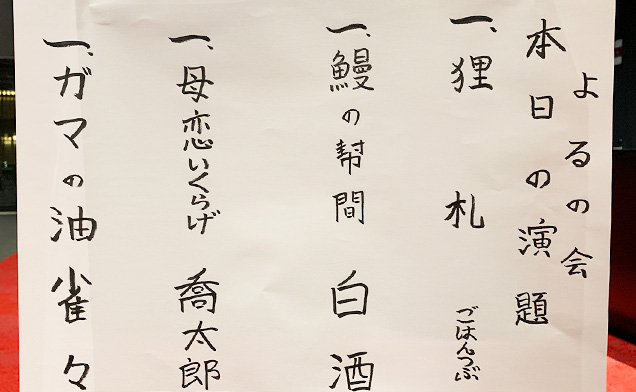 よるの会
本日の演題
一、狸札 ごはんつぶ
一、鰻の幇間 白酒
一、母恋いくらげ 喬太郎
一、ガマの油 雀々